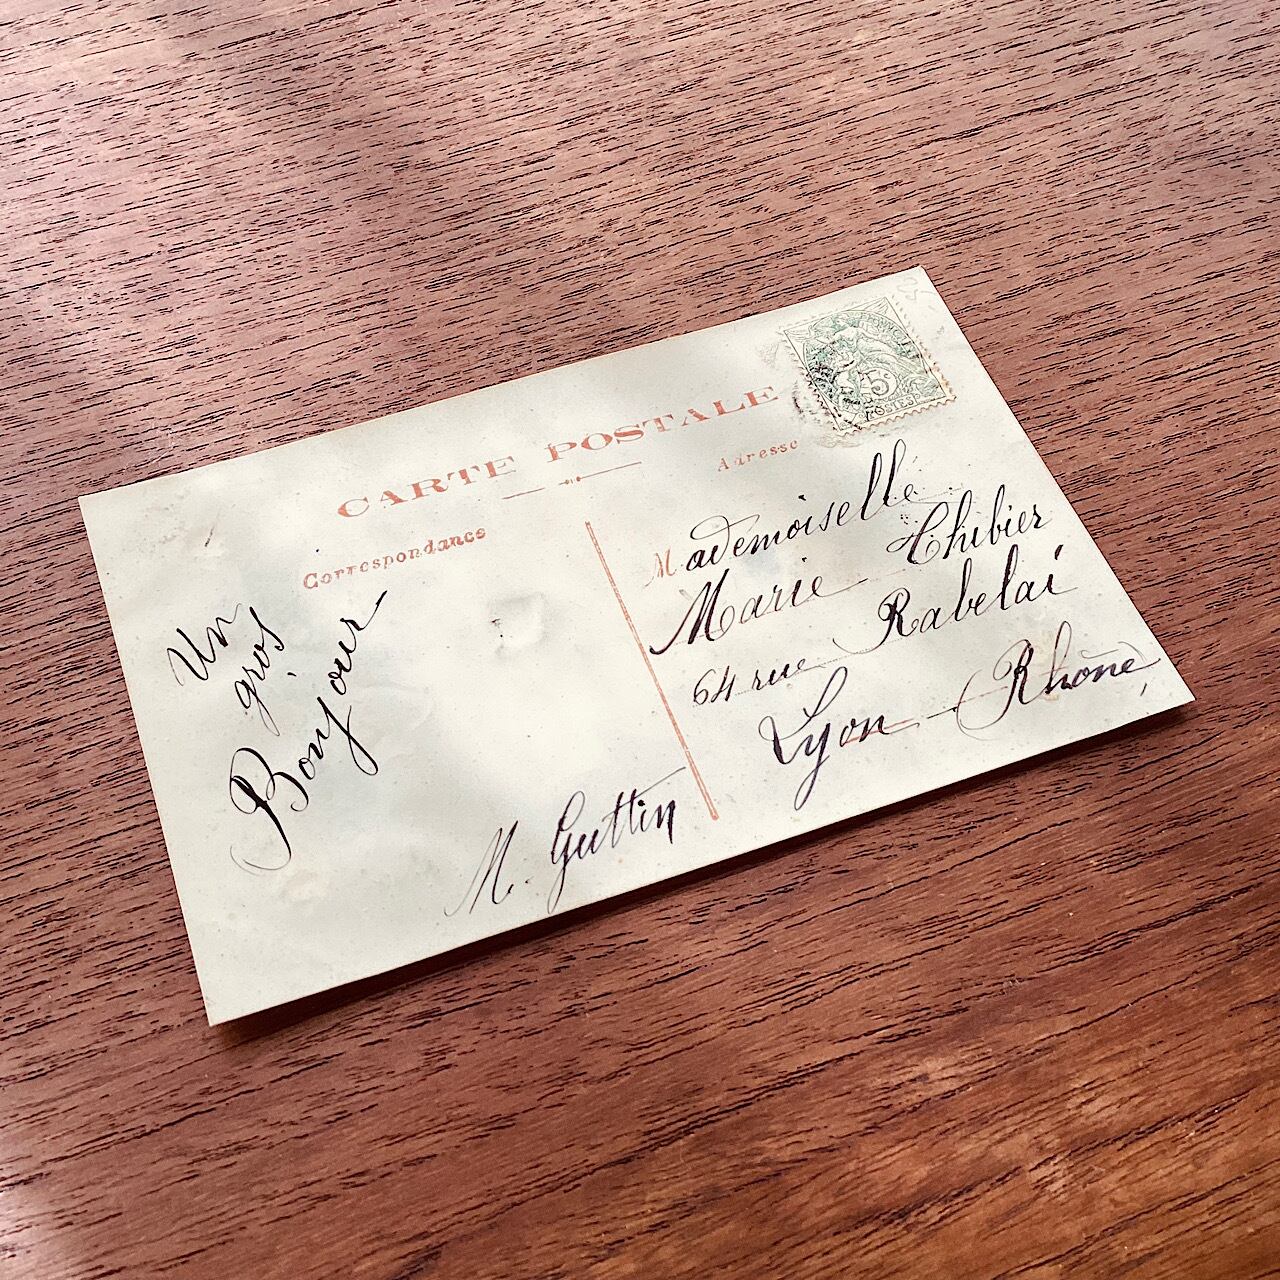 CARTE POSTALE
Correspondance
Adresse
Un
gros
Bonjour
M. Guttin
Mademoiselle
Marie Thibier
64 rue Rabelai
Lyon - (Rhône)
5
POSTES